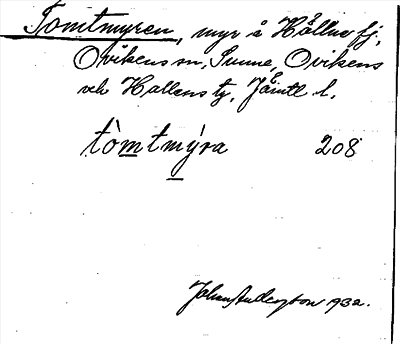 Tomtmyren, myr å Hållne fj.
Ovikens sn, Sunne, Ovikens
och Hallens tg, Jämtl l.
tòmtmýra 208
Johan Anderson 1932.